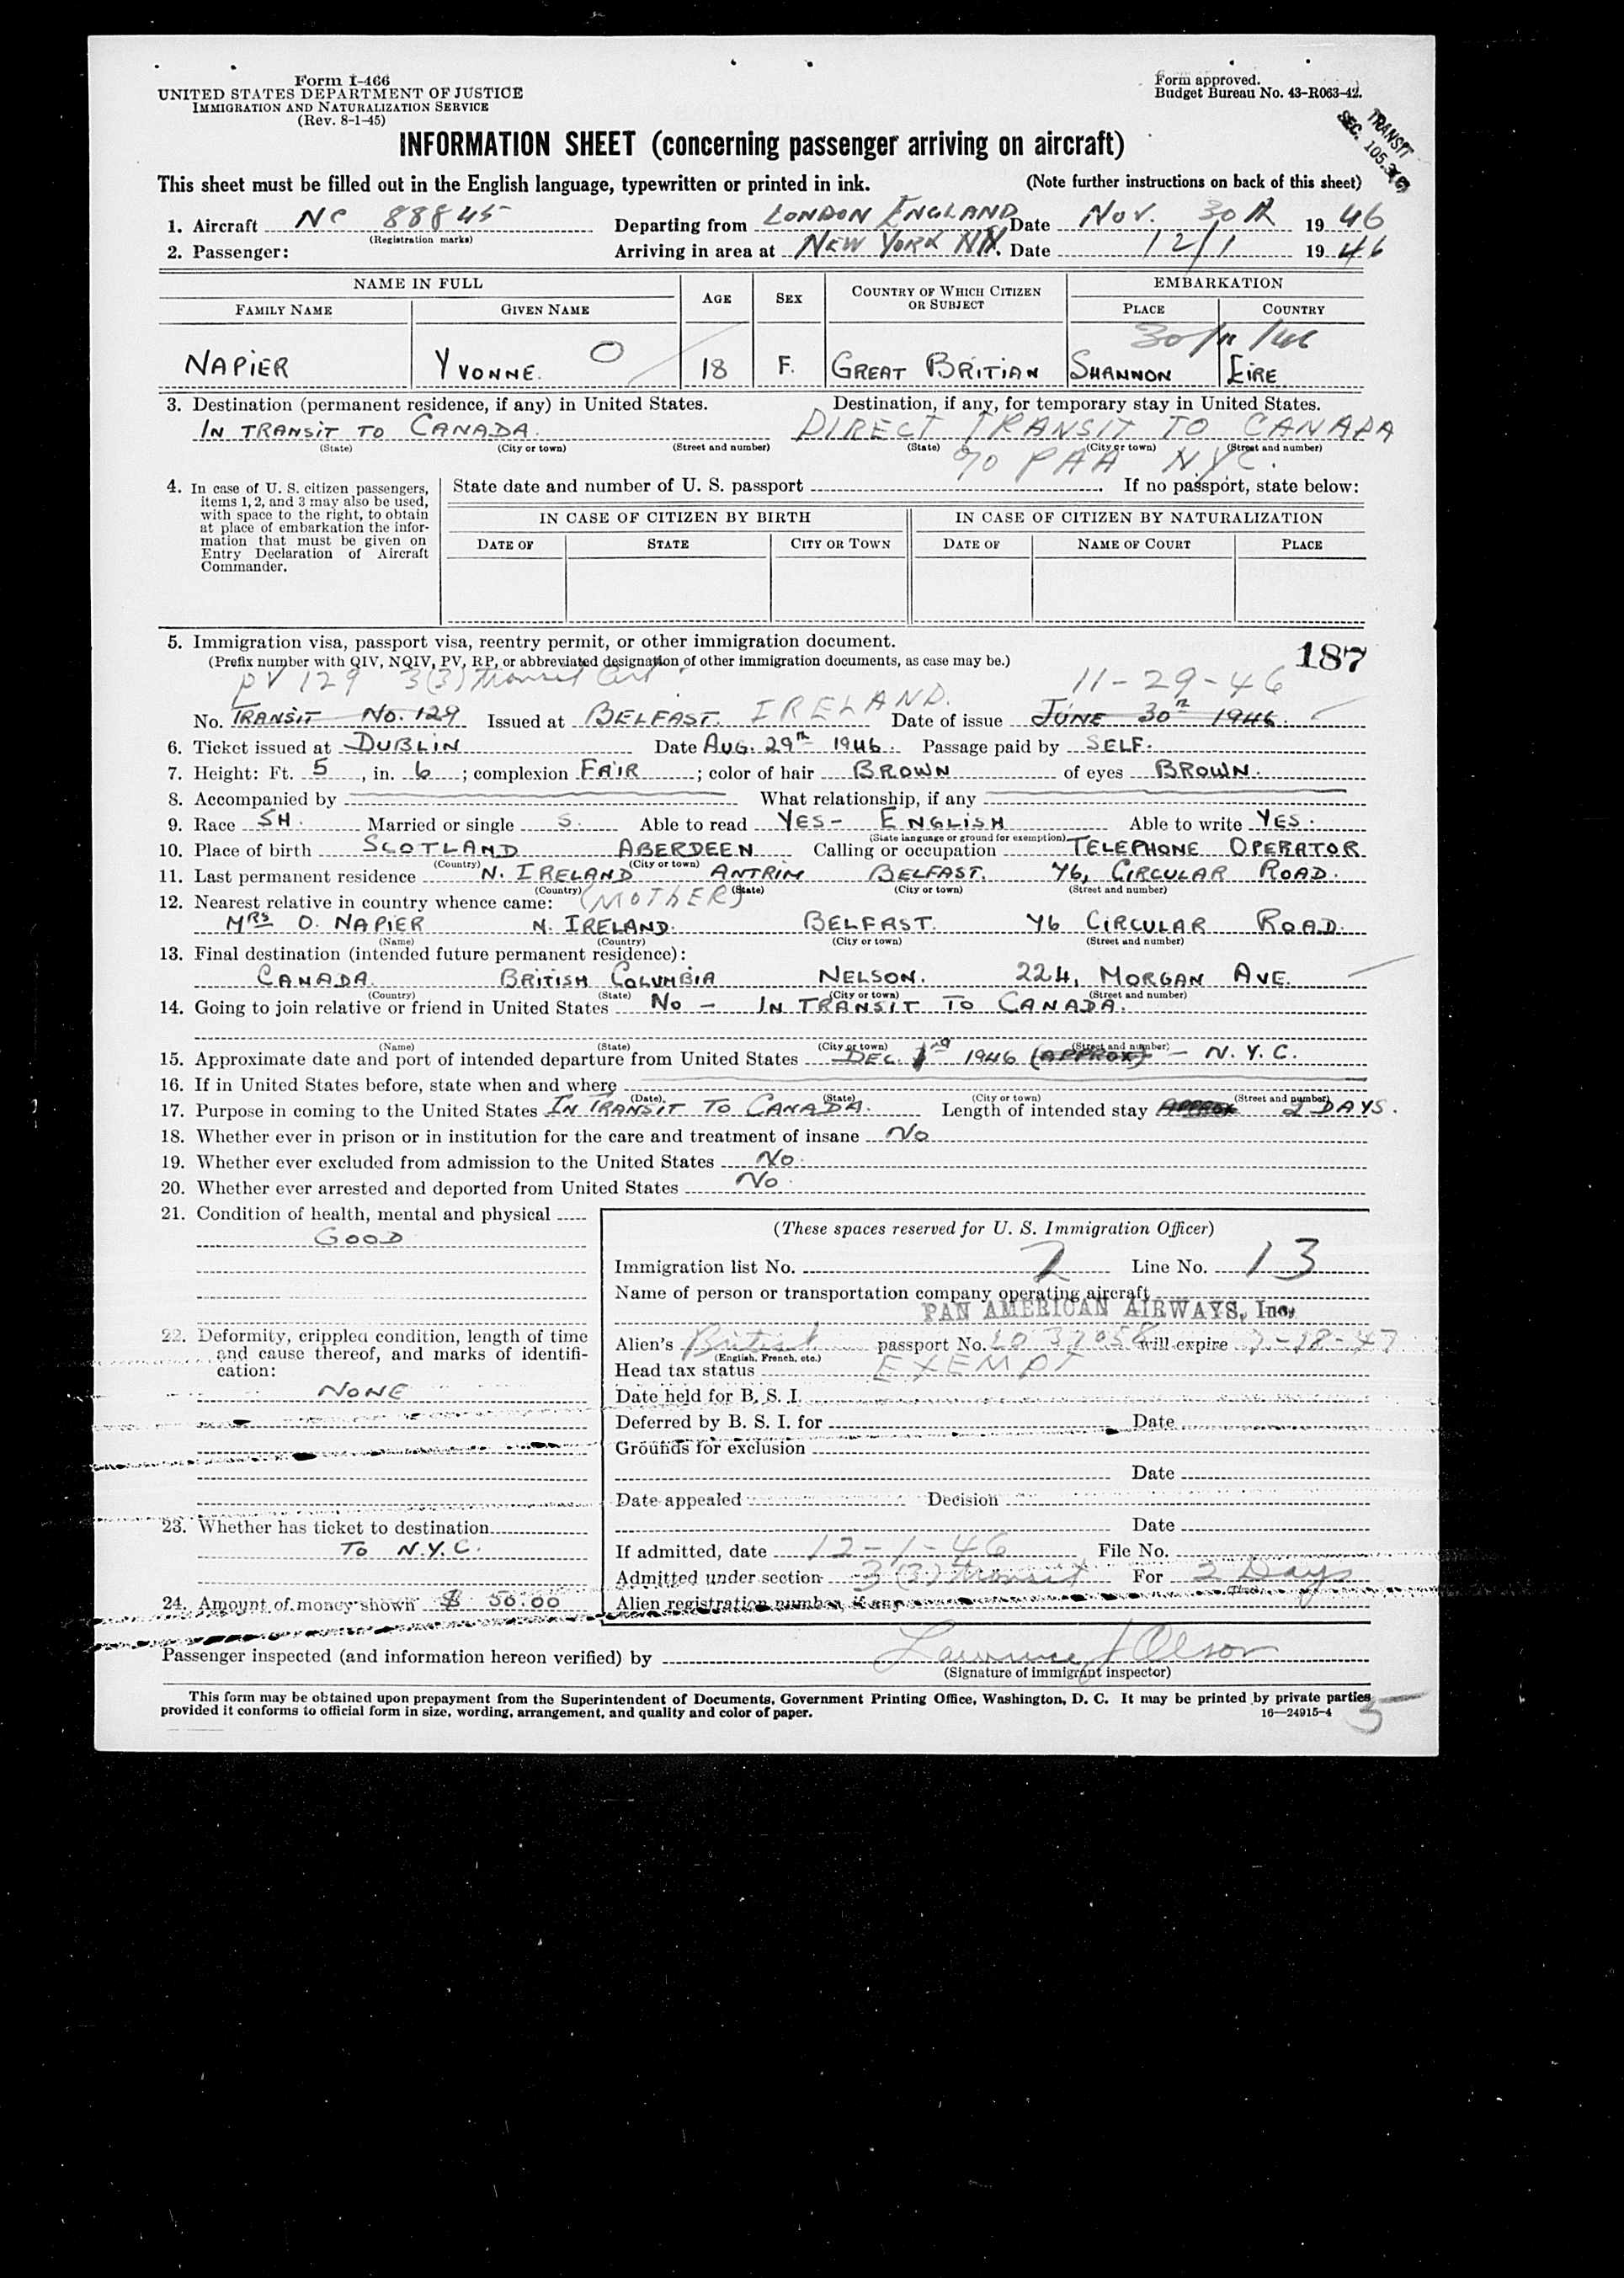 Form I-466
UNITED STATES DEPARTMENT OF JUSTICE
IMMIGRATION AND NATURALIZATION SERVICE
(Rev. 8-1-45)
Form approved.
Budget Bureau No. 43-R063-42.
TRANSIT
SEC. 105.3
INFORMATION SHEET (concerning passenger arriving on aircraft)
This sheet must be filled out in the English language, typewritten or printed in ink. (Note further instructions on back of this sheet)
1. Aircraft NC 88845 Departing from LONDON ENGLAND Date NOV. 30th 1946
(Registration marks)
2. Passenger: Arriving in area at NEW YORK NY. Date 12/1 1946
NAME IN FULL AGE SEX COUNTRY OF WHICH CITIZEN OR SUBJECT EMBARKATION
FAMILY NAME GIVEN NAME PLACE COUNTRY
30/11/46
NAPIER YVONNE. O 18 F. GREAT BRITIAN SHANNON EIRE
3. Destination (permanent residence, if any) in United States. Destination, if any, for temporary stay in United States.
IN TRANSIT TO CANADA. DIRECT TRANSIT TO CANADA
(State) (City or town) (Street and number) (State) (City or town) (Street and number)
c/o PAA N.Y.C.
4. In case of U. S. citizen passengers, items 1, 2, and 3 may also be used, with space to the right, to obtain at place of embarkation the information that must be given on Entry Declaration of Aircraft Commander.
State date and number of U. S. passport . If no passport, state below:
IN CASE OF CITIZEN BY BIRTH IN CASE OF CITIZEN BY NATURALIZATION
DATE OF STATE CITY OR TOWN DATE OF NAME OF COURT PLACE
5. Immigration visa, passport visa, reentry permit, or other immigration document. 187
(Prefix number with QIV, NQIV, PV, RP, or abbreviated designation of other immigration documents, as case may be.)
PV 129 3(3) Transit Cert 11-29-46
No. TRANSIT No. 129 Issued at BELFAST. IRELAND. Date of issue JUNE 30th 1946.
6. Ticket issued at DUBLIN Date AUG. 29th 1946. Passage paid by SELF.
7. Height: Ft. 5, in. 6; complexion FAIR; color of hair BROWN of eyes BROWN.
8. Accompanied by What relationship, if any
9. Race SH. Married or single S. Able to read YES- ENGLISH Able to write YES.
(State language or ground for exemption)
10. Place of birth SCOTLAND ABERDEEN Calling or occupation TELEPHONE OPERATOR
(Country) (City or town)
11. Last permanent residence N. IRELAND ANTRIM BELFAST. 46, CIRCULAR ROAD.
(Country) (State) (City or town) (Street and number)
12. Nearest relative in country whence came: (MOTHER)
MRS O. NAPIER N. IRELAND. BELFAST. 46 CIRCULAR ROAD.
(Name) (Country) (City or town) (Street and number)
13. Final destination (intended future permanent residence):
CANADA. BRITISH COLUMBIA NELSON. 224, MORGAN AVE.
(Country) (State) (City or town) (Street and number)
14. Going to join relative or friend in United States NO - IN TRANSIT TO CANADA.
(Name) (State) (City or town) (Street and number)
15. Approximate date and port of intended departure from United States DEC. 1946 (APPROX) - N.Y.C.
16. If in United States before, state when and where
(Date) (State) (City or town) (Street and number)
17. Purpose in coming to the United States IN TRANSIT TO CANADA. Length of intended stay APPROX 2 DAYS.
18. Whether ever in prison or in institution for the care and treatment of insane NO
19. Whether ever excluded from admission to the United States NO.
20. Whether ever arrested and deported from United States NO.
21. Condition of health, mental and physical
GOOD
22. Deformity, crippled condition, length of time and cause thereof, and marks of identification:
NONE
23. Whether has ticket to destination
TO N.Y.C.
24. Amount of money shown $ 50.00
(These spaces reserved for U. S. Immigration Officer)
Immigration list No. 2 Line No. 13
Name of person or transportation company operating aircraft
PAN AMERICAN AIRWAYS, Inc.
Alien's British passport No. will expire
(English, French, etc.)
Head tax status EXEMPT
Date held for B. S. I.
Deferred by B. S. I. for Date
Grounds for exclusion
Date
Date appealed Decision
Date
If admitted, date 12-1-46 File No.
Admitted under section 3(3) transit For 2 Days
(Time)
Alien registration number, if any
Passenger inspected (and information hereon verified) by Lawrence J Olson
(Signature of immigrant inspector)
This form may be obtained upon prepayment from the Superintendent of Documents, Government Printing Office, Washington, D. C. It may be printed by private parties
provided it conforms to official form in size, wording, arrangement, and quality and color of paper. 16—24915-4
5